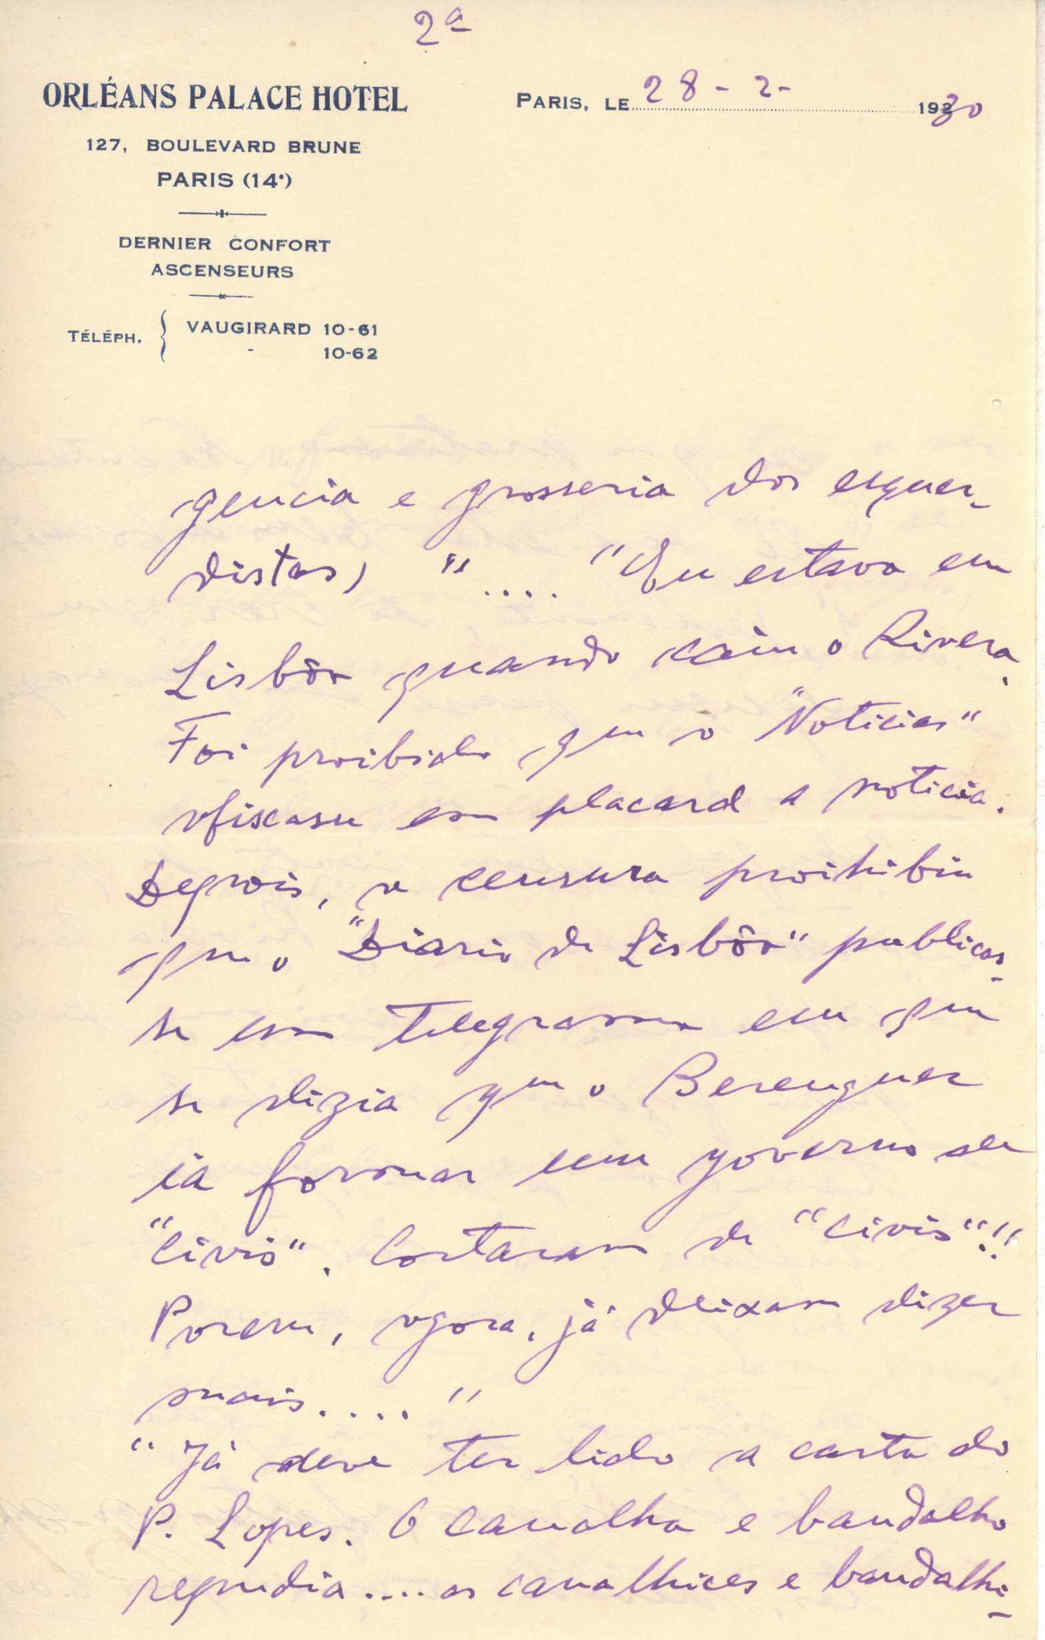 2ª
ORLÉANS PALACE HOTEL
127, BOULEVARD BRUNE
PARIS (14e)
DERNIER CONFORT
ASCENSEURS
TÉLÉPH. { VAUGIRARD 10-61
- 10-62
PARIS, LE 28-2- 1930
gencia e grosseria dos esquer-
distas) ".... "Eu estava em
Lisbôa quando caiu o Rivera.
Foi proibido que o "Noticias"
afixasse em placard a noticia.
Depois, a censura prohibiu
que o "Diario de Lisbôa" publicas-
se um telegrama em que
se dizia que o Berenguer
ia formar um governo de
"civis". Cortaram de "civis"!!
Porem, agora, já deixam dizer
mais...."
"Já deve ter lido a carta do
P. Lopes. O canalha e bandalho
repudia.... as canalhices e bandalhi-